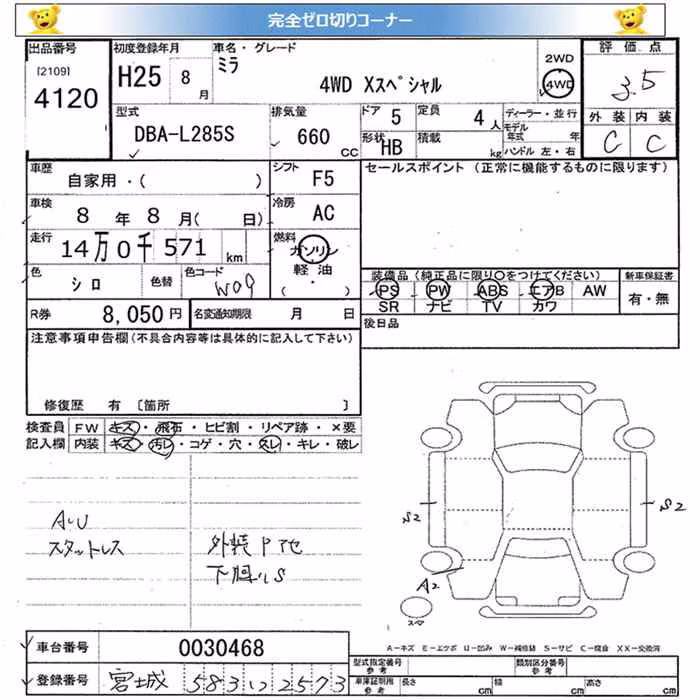 完全ゼロ切りコーナー
出品番号
[2109]
4120
初度登録年月
H25 8月
車名・グレード
ミラ
4WD Xスペシャル
2WD
4WD
評価点
3.5
外装 内装
C C
型式
DBA-L285S
排気量
660 CC
ドア 5
定員 4人
形状 HB
積載 kg
ディーラー・並行
モデル年式 年
ハンドル 左・右
車歴
自家用・( )
シフト F5
セールスポイント (正常に機能するものに限ります)
車検
8年 8月( 日)
冷房 AC
走行
14万0千571 km
燃料
ガソリン
軽油
(・)
色
シロ
色替
色コード
W09
装備品(純正品に限り○をつけてください)
PS PW ABS エアB AW
SR ナビ TV カワ
新車保証書
有・無
R券 8,050円
名変通知期限 月 日
後日品
注意事項申告欄(不具合内容等は具体的に記入して下さい)
修復歴 有 [箇所 ]
検査員記入欄
FW キズ・飛石・ヒビ割・リペア跡・×要
内装 キズ・汚レ・コゲ・穴・スレ・キレ・破レ
スタットレス
外装P他
S2
S2
A2
スペア
A-キズ E-エクボ U-凹み W-補修跡 S-サビ C-腐食 XX-交換済
車台番号 0030468
登録番号 宮城 583 い 2573
型式指定番号
参考
類別区分番号
参考
車庫証明用
参考
長さ cm
幅 cm
高さ cm